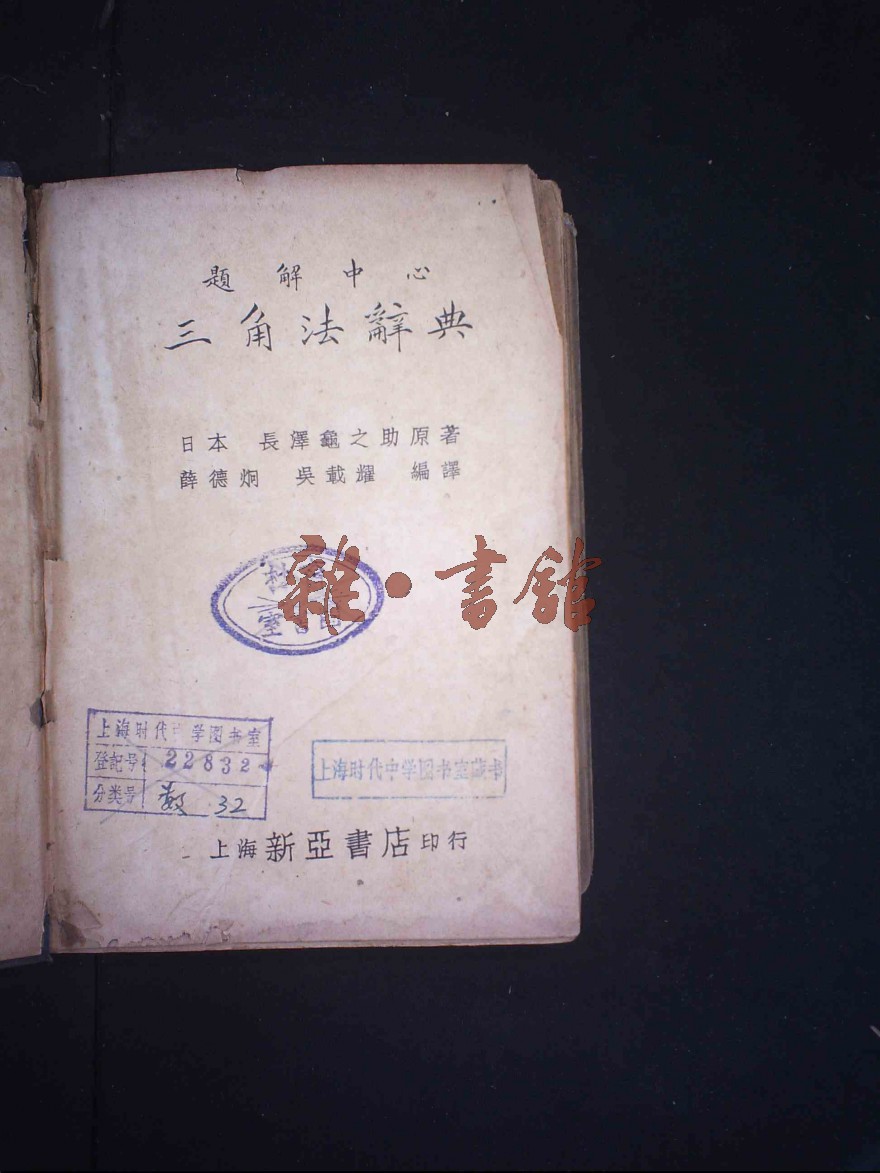 題解中心
三角法辭典
日本 長澤龜之助原著
薛德炯 吳載耀 編譯
雜·書館
上海时代中学图书室
登記号 22832
分类号 数 32
上海时代中学图书室藏书
上海新亞書店印行